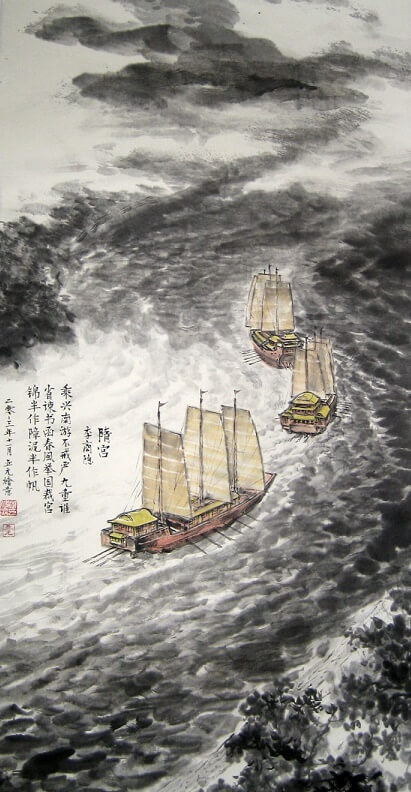 隋宫
李商隐
乘兴南游不戒严 九重谁
省谏书函春风举国裁宫
锦半作障泥半作帆